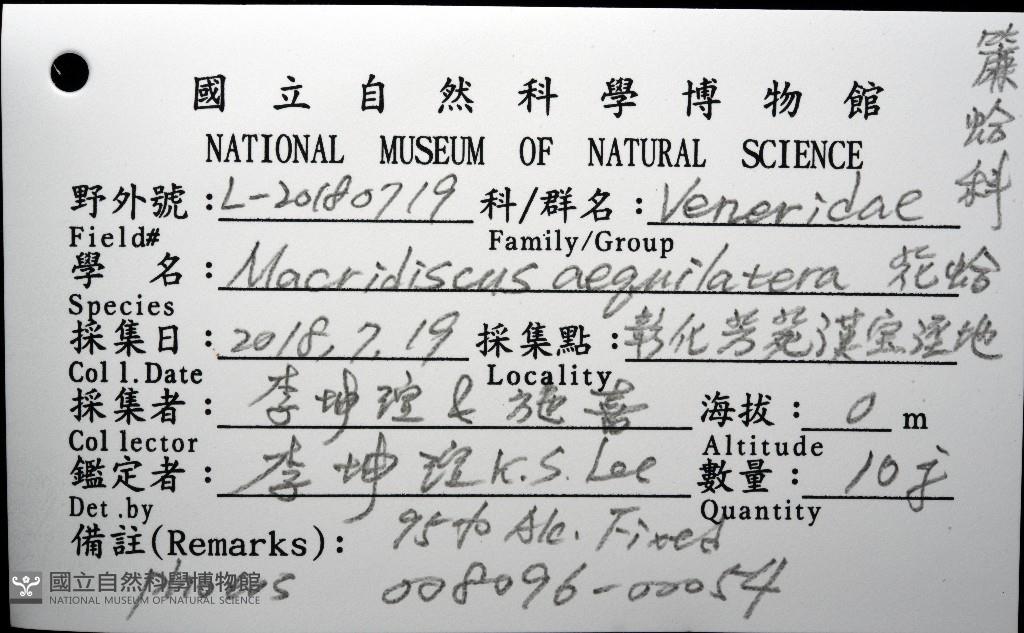 國立自然科學博物館
NATIONAL MUSEUM OF NATURAL SCIENCE
簾蛤科
野外號：L-20180719 科/群名：Veneridae
Field# Family/Group
學名：Macridiscus aequilatera 花蛤
Species
採集日：2018.7.19 採集點：彰化芳苑漢宝溼地
Coll.Date Locality
採集者：李坤瑄 & 施 海拔：0 m
Collector Altitude
鑑定者：李坤瑄 K.S. Lee 數量：10
Det.by Quantity
備註(Remarks)： 95% Alc. Fixed
008096-00054
國立自然科學博物館
NATIONAL MUSEUM OF NATURAL SCIENCE